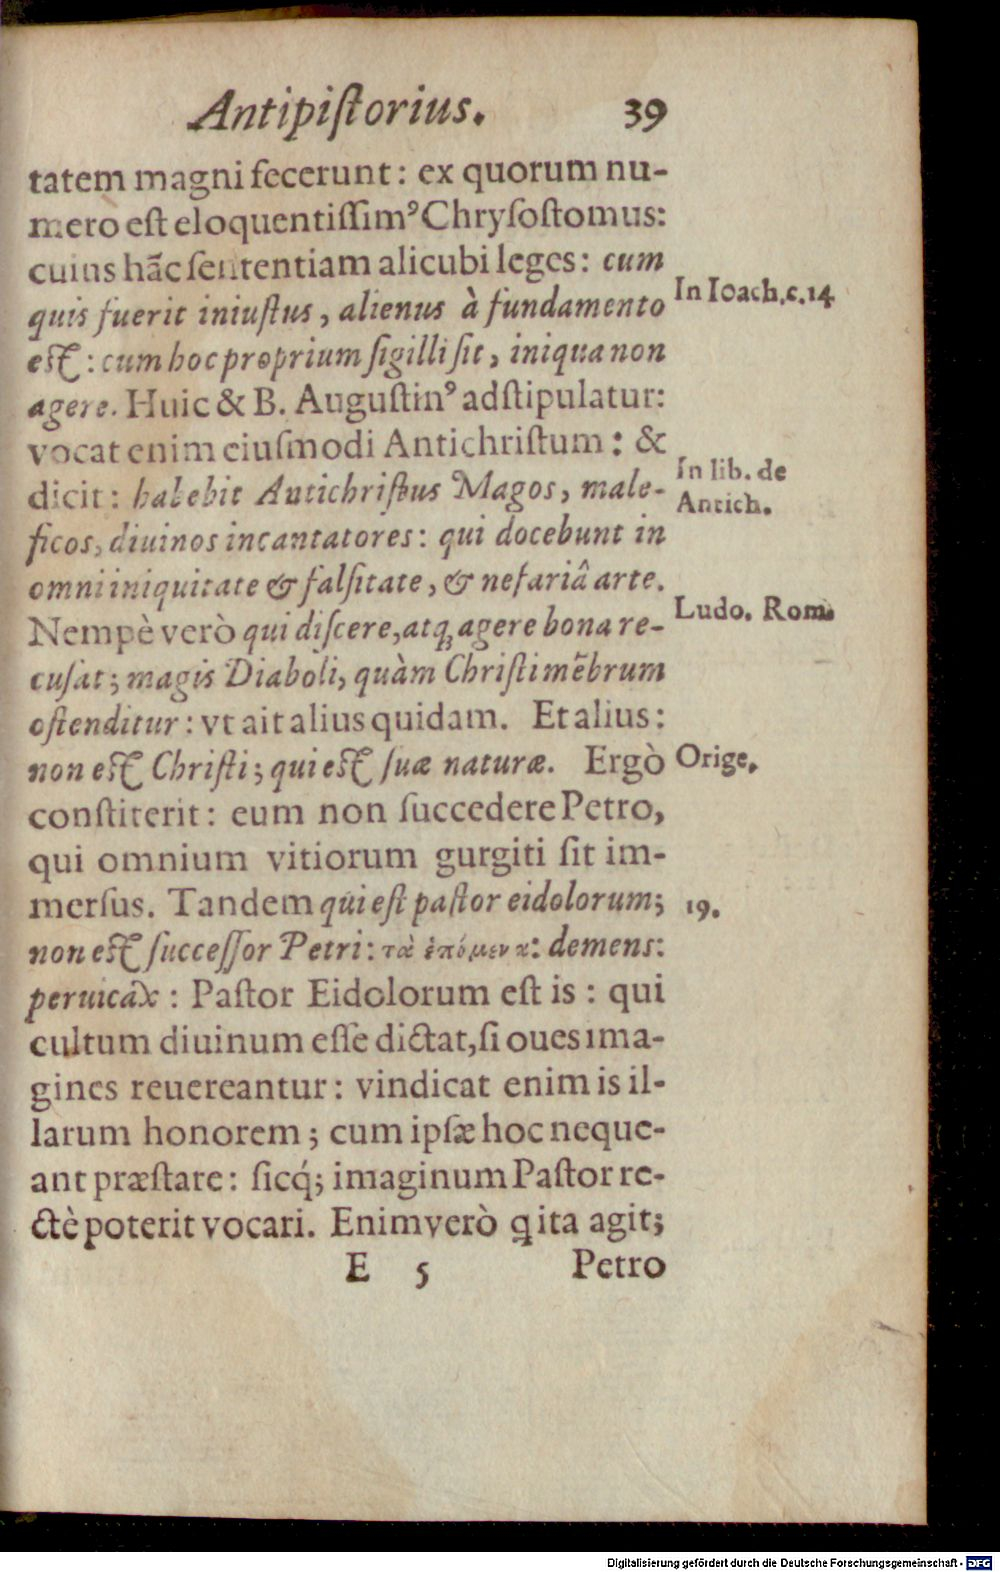 Antipiſtorius. 39
tatem magni fecerunt: ex quorum nu-
mero eſt eloquentiſſimꝰ Chryſoſtomus:
cuius hãc ſententiam alicubi leges: cum
In Ioach. c. 14
quis fuerit iniuſtus, alienus à fundamento
eſt: cum hoc proprium ſigilli ſit, iniqua non
agere. Huic & B. Auguſtinꝰ adſtipulatur:
vocat enim eiuſmodi Antichriſtum: &
In lib. de
Antich.
dicit: habebit Antichriſtus Magos, male-
ficos, diuinos incantatores: qui docebunt in
omni iniquitate & falſitate, & nefariâ arte.
Ludo. Rom.
Nempè verò qui diſcere, atq; agere bona re-
cuſat; magis Diaboli, quàm Chriſti mẽbrum
oſtenditur: vt ait alius quidam. Et alius:
non eſt Chriſti; qui eſt ſuæ naturæ. Ergò
Orige.
conſtiterit: eum non ſuccedere Petro,
qui omnium vitiorum gurgiti ſit im-
merſus. Tandem qui eſt paſtor eidolorum;
19.
non eſt ſucceſſor Petri: τὰ ἑπόμενα: demens:
peruicax: Paſtor Eidolorum eſt is: qui
cultum diuinum eſſe dictat, ſi oues ima-
gines reuereantur: vindicat enim is il-
larum honorem; cum ipſæ hoc neque-
ant præſtare: ſicq́; imaginum Paſtor re-
ctè poterit vocari. Enimverò ꝗ ita agit;
E 5 Petro
Digitalisierung gefördert durch die Deutsche Forschungsgemeinschaft - DFG